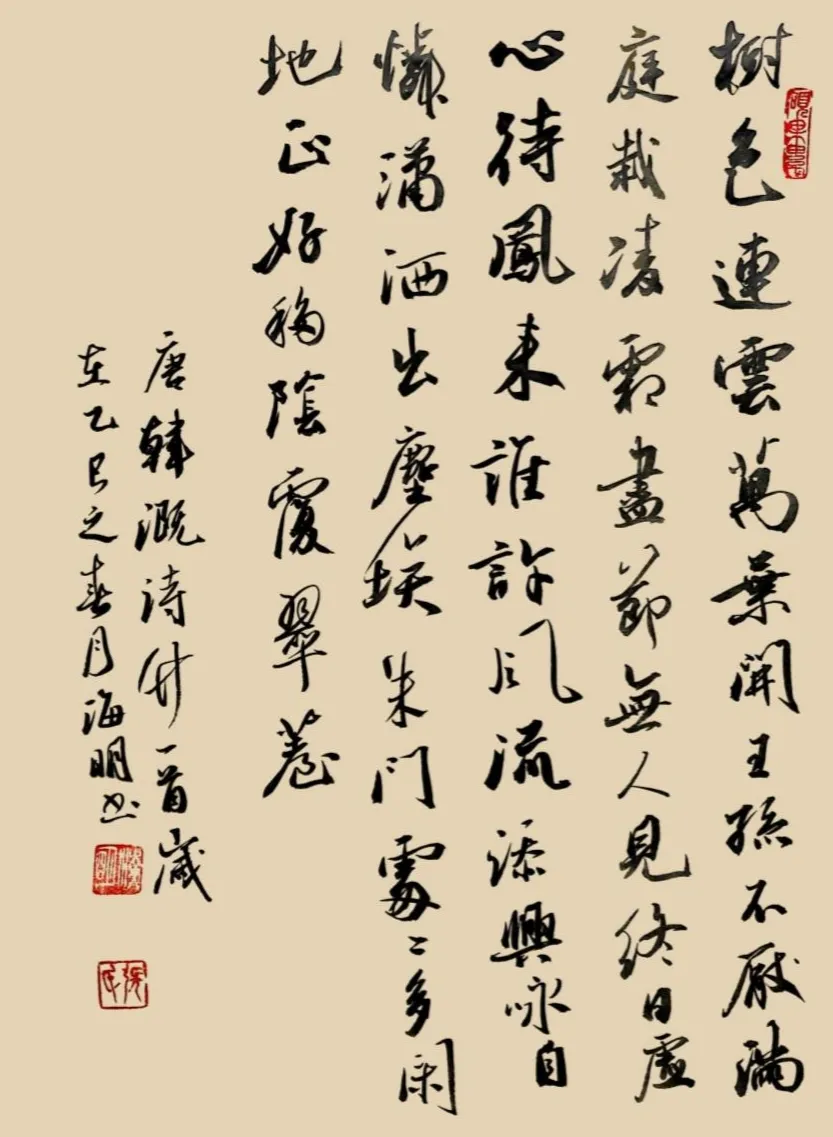 樹色連雲萬葉開王孫不厭滿
庭栽凌霜盡節無人見終日虛
心待鳳來誰許風流添興咏自
憐瀟洒出塵埃朱門處〻多閑
地正好移陰覆翠苔
唐韓溉詩竹一首歲
在乙巳之春月海明书